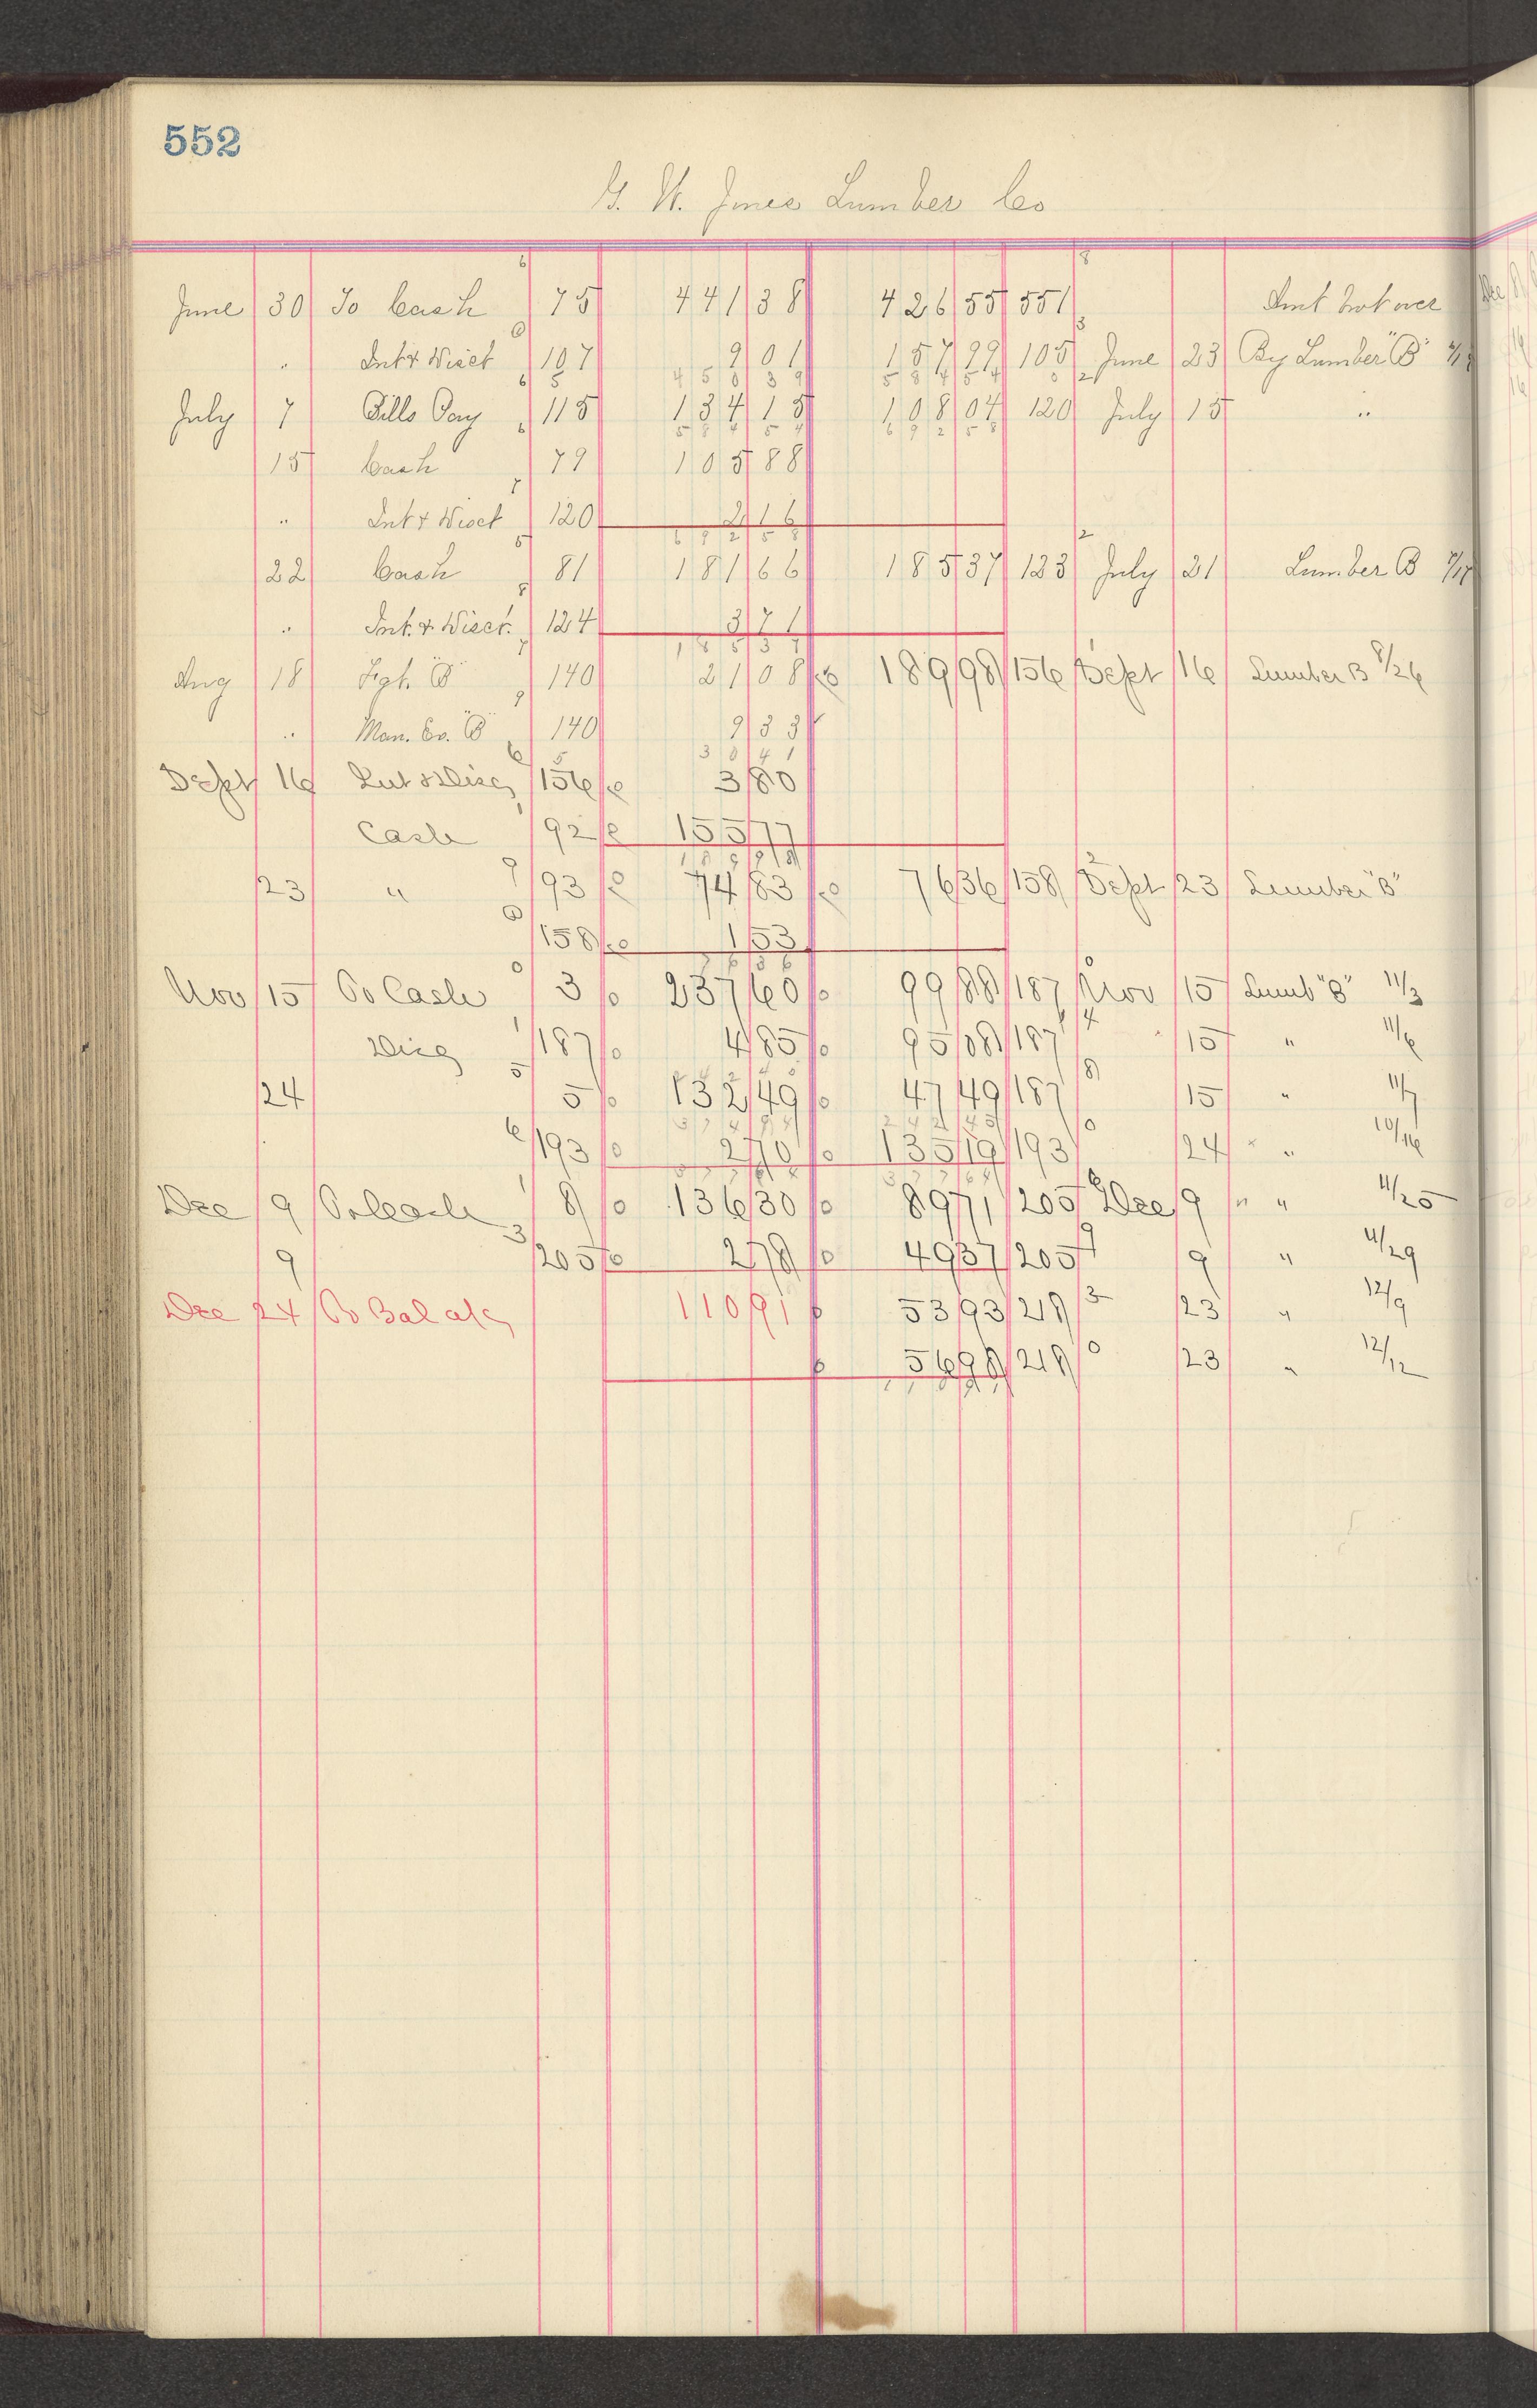 552
G. W. Jones Lumber Co
June 30 To Cash 75 441 38 426 55 551 Amt brot over
" Int & Disct 107 9 01 157 29 105 June 23 By Lumber "B"
450 39 584 54
July 7 Bills Pay 115 134 15 108 04 120 July 15 "
584 54 692 58
15 Cash 79 105 88
" Int & Disct 120 2 16
692 58
22 Cash 81 181 66 185 37 123 July 21 Lumber B
" Int. & Disct. 124 3 71
185 37
Aug 18 Frgt. "B" 140 21 08 189 98 156 Sept 16 Lumber B 8/26
" Man. Co. "B" 140 9 33
30 41
Sept 16 Int & Disc 156 3 80
Cash 92 155 77
189 98
23 " 93 74 83 76 36 158 Sept 23 Lumber "B"
158 1 53
76 36
Nov 15 To Cash 3 237 60 99 88 187 Nov 15 Lumb "B" 11/3
Disc 187 4 85 95 08 187 15 " 11/6
24 5 132 49 47 49 187 15 " 11/7
193 2 70 135 19 193 24 " " 10/16
Dec 9 To Cash 8 136 30 89 71 205 Dec 9 " " 11/25
9 205 2 78 49 37 205 9 " 11/29
Dec 24 To Bal a/c 110 91 53 93 219 23 " 12/9
56 98 219 23 " 12/12